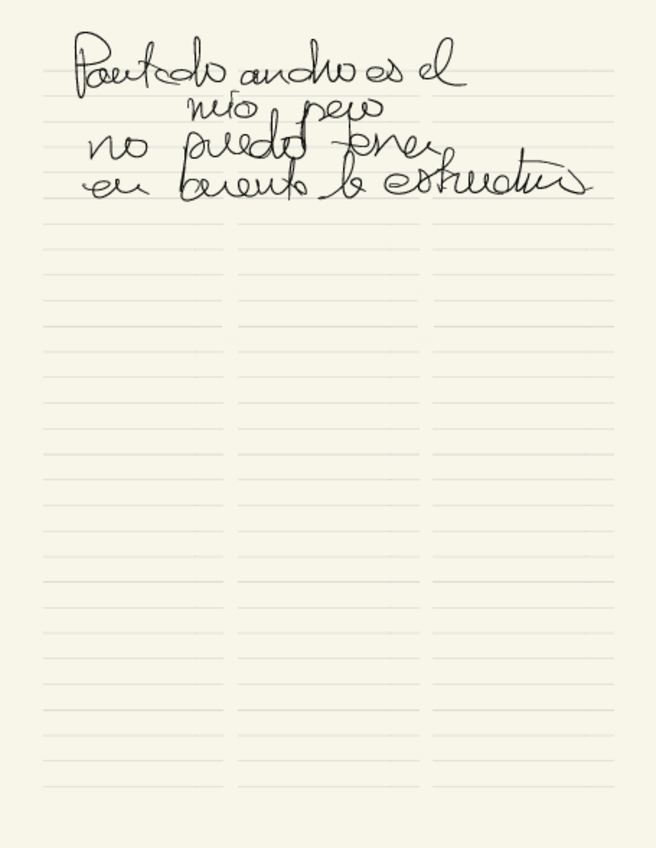 Pautado ancho es el
mío pero
no puedo tener
en cuenta la estructura